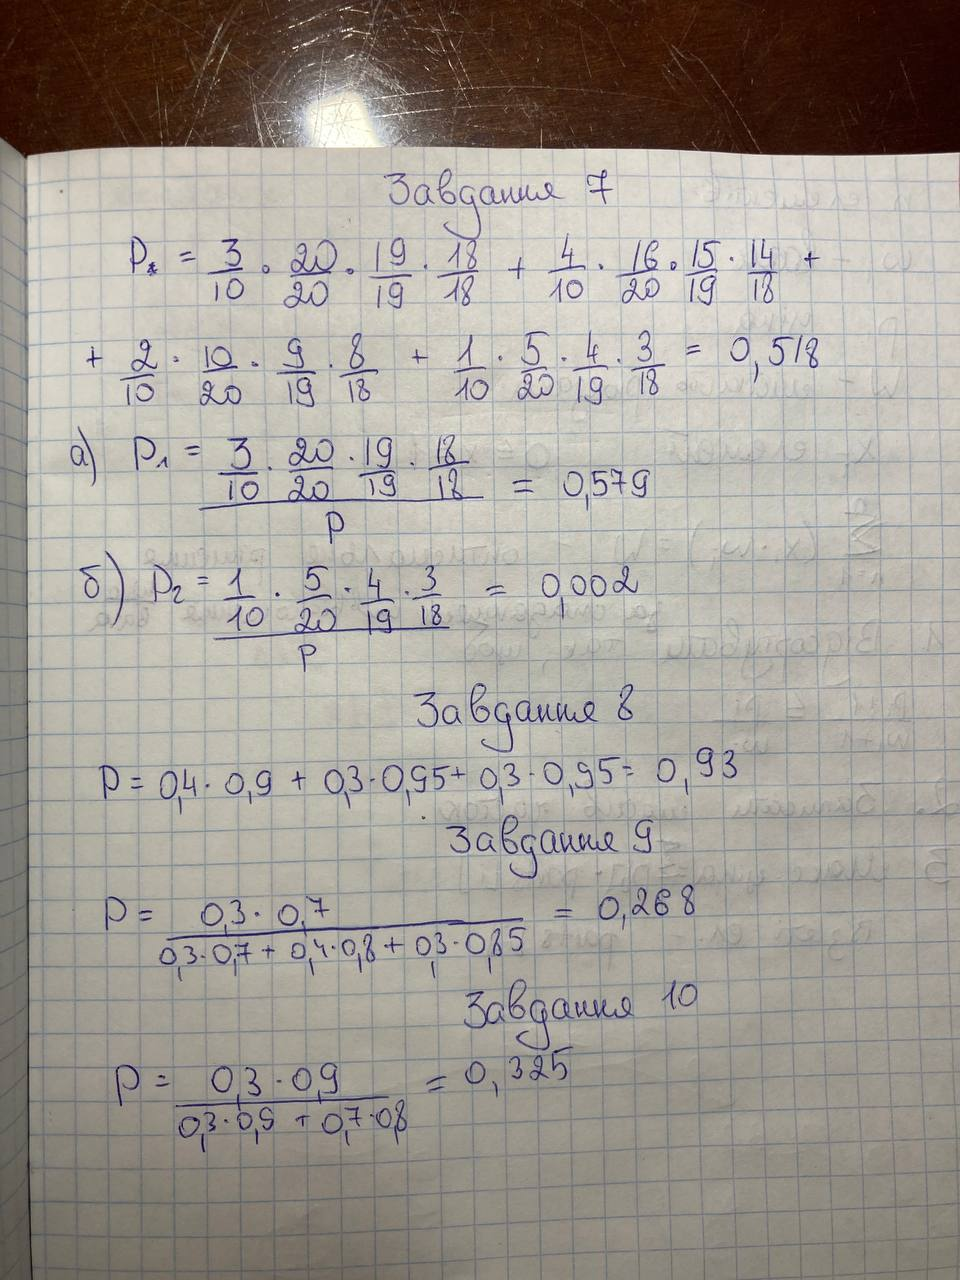 Завдання 7
P. = 3/10 · 20/20 · 19/19 · 18/18 + 4/10 · 16/20 · 15/19 · 14/18 +
+ 2/10 · 10/20 · 9/19 · 8/18 + 1/10 · 5/20 · 4/19 · 3/18 = 0,518
а) P₁ = (3/10 · 20/20 · 19/19 · 18/18)/P = 0,579
б) P₂ = (1/10 · 5/20 · 4/19 · 3/18)/P = 0,002
Завдання 8
P = 0,4 · 0,9 + 0,3 · 0,95 + 0,3 · 0,95 = 0,93
Завдання 9
P = (0,3 · 0,7)/(0,3 · 0,7 + 0,4 · 0,8 + 0,3 · 0,85) = 0,268
Завдання 10
P = (0,3 · 0,9)/(0,3 · 0,9 + 0,7 · 0,8) = 0,325